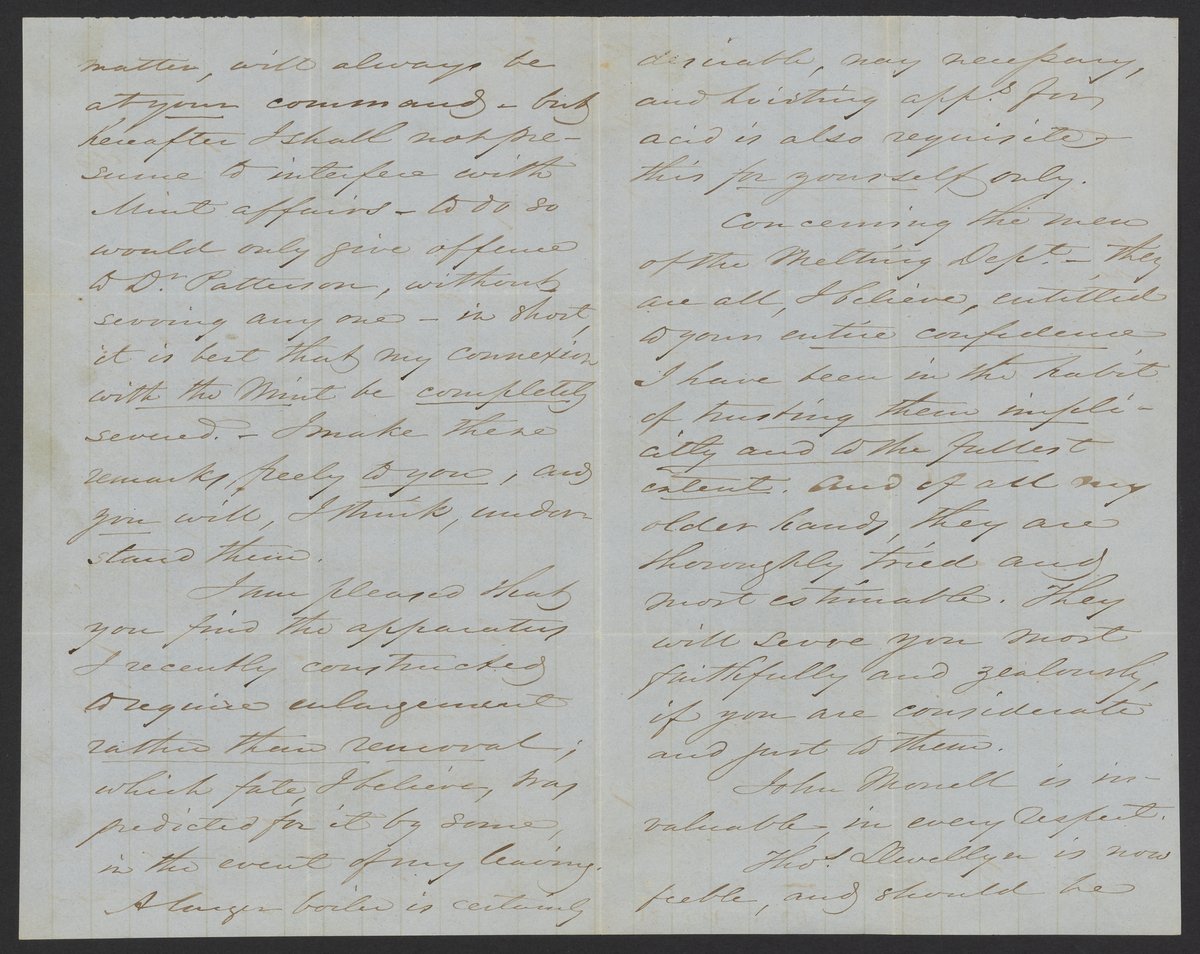 matter, will always be
at your command – but
hereafter I shall not pre-
sume to interfere with
Mint affairs – to do so
would only give offence
to Dr Patterson, without
serving any one – in short,
it is best that my connexion
with the Mint be completely
severed. – I make these
remarks, freely to you, and
you will, I think, under-
stand them.
I am pleased that
you find the apparatus
I recently constructed
to require enlargement
rather than removal;
which fate, I believe, was
predicted for it by some,
in the event of my leaving.
A larger boiler is certainly
desirable, nay necessary,
and hoisting app.s for
acid is also requisite –
this for yourself only.
Concerning the men
of the Melting Dept. – they
are all, I believe, entitled
to your entire confidence
I have been in the habit
of trusting them impli-
citly and to the fullest
extent. And of all my
older hands, they are
thoroughly tried and
most estimable. They
will serve you most
faithfully and zealously,
if you are considerate
and just to them.
John Monell is in-
valuable in every respect.
Thos. Llewellyn is now
feeble, and should be